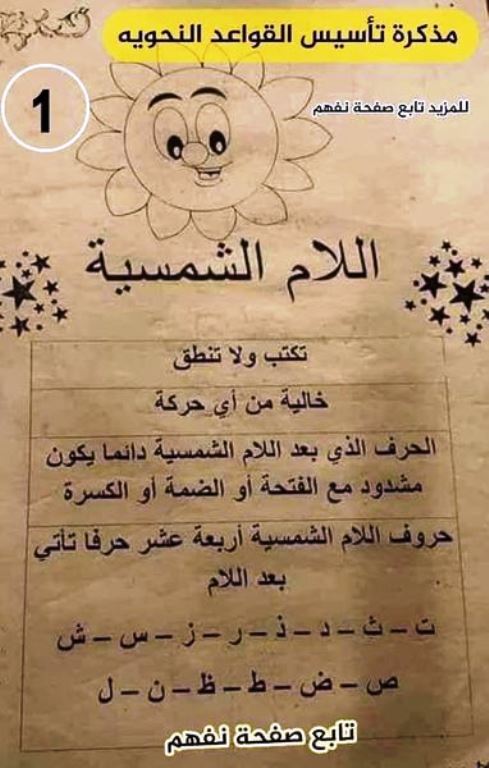 مذكرة تأسيس القواعد النحويه
1
للمزيد تابع صفحة نفهم
اللام الشمسية
تكتب ولا تنطق
خالية من أي حركة
الحرف الذي بعد اللام الشمسية دائما يكون
مشدود مع الفتحة أو الضمة أو الكسرة
حروف اللام الشمسية أربعة عشر حرفا تأتي
بعد اللام
ت – ث – د – ذ – ر – ز – س – ش
ص – ض – ط – ظ – ن – ل
تابع صفحة نفهم